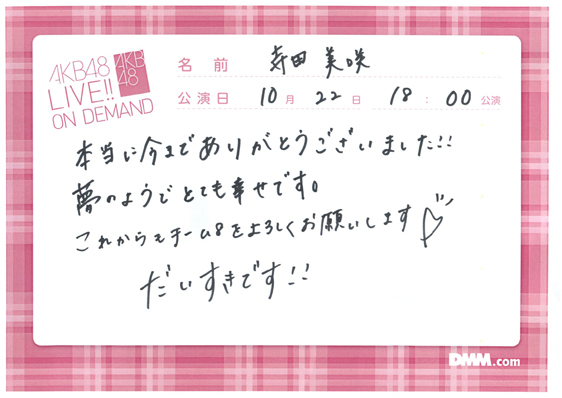 AKB48
LIVE!!
ON DEMAND
AKB
48
名前 寺田 美咲
公演日 10月 22日 18:00公演
本当に今までありがとうございました!!
夢のようでとても幸せです。
これからもチーム8をよろしくお願いします
だいすきです!!
DMM.com